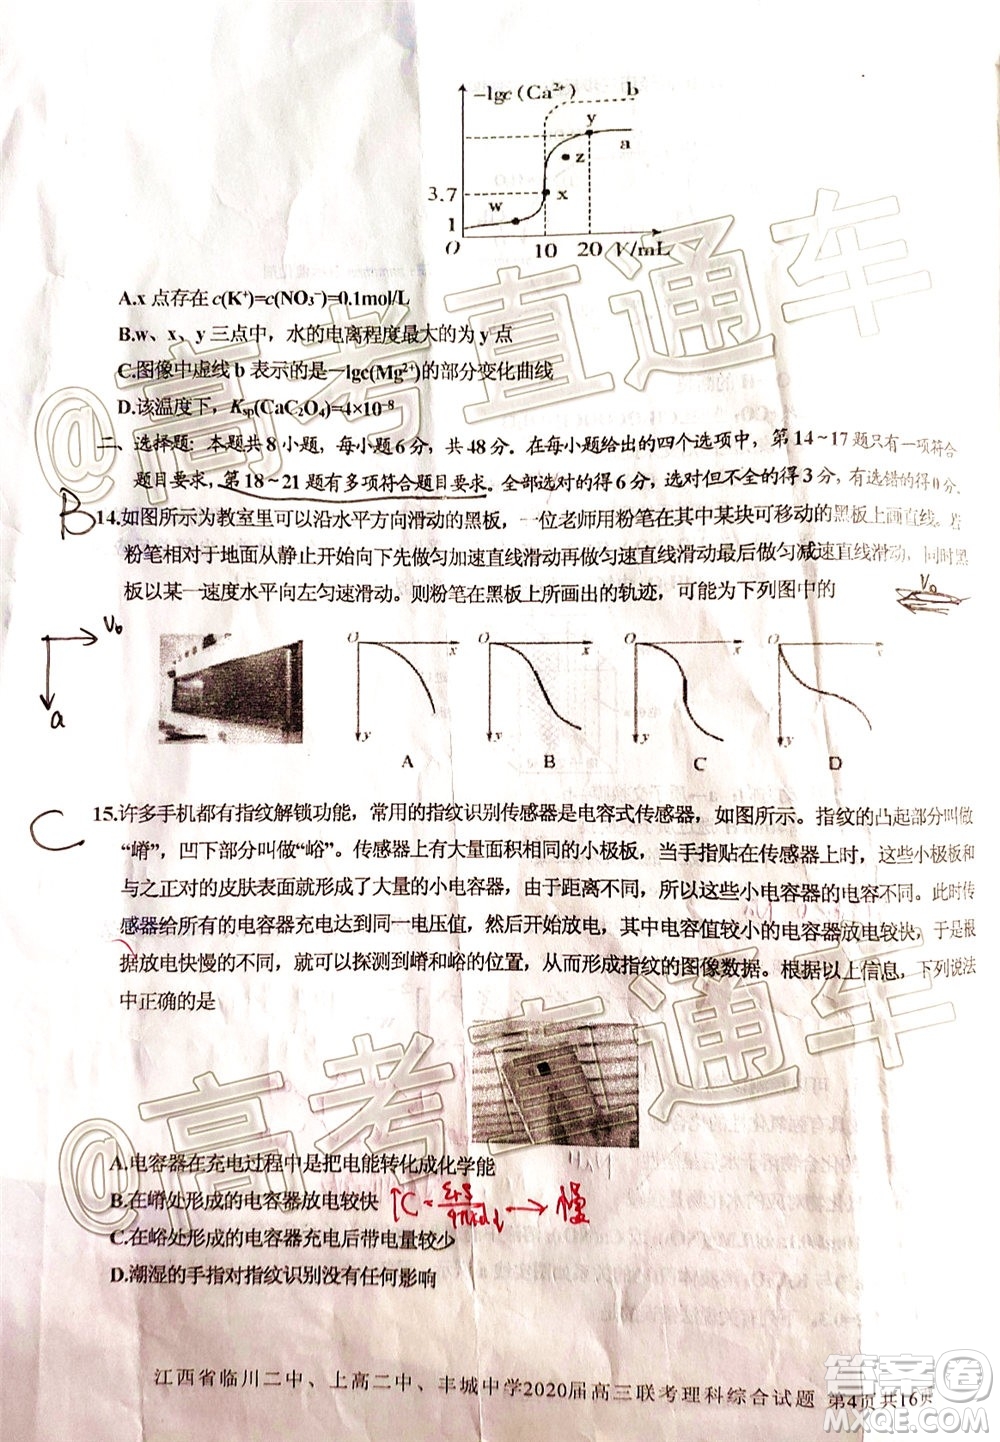 -lgc(Ca²⁺)
b
y
a
z
3.7
x
w
1
O 10 20 V/mL
A.x 点存在 c(K⁺)=c(NO₃⁻)=0.1mol/L
B.w、x、y 三点中，水的电离程度最大的为 y 点
C.图像中虚线 b 表示的是—lgc(Mg²⁺)的部分变化曲线
D.该温度下，Ksp(CaC₂O₄)=4×10⁻⁸
二、选择题：本题共 8 小题，每小题 6 分，共 48 分．在每小题给出的四个选项中，第 14～17 题只有一项符合
题目要求，第 18～21 题有多项符合题目要求。全部选对的得 6 分，选对但不全的得 3 分，有选错的得 0 分．
B
14.如图所示为教室里可以沿水平方向滑动的黑板，一位老师用粉笔在其中某块可移动的黑板上画直线。若
粉笔相对于地面从静止开始向下先做匀加速直线滑动再做匀速直线滑动最后做匀减速直线滑动，同时黑
板以某一速度水平向左匀速滑动。则粉笔在黑板上所画出的轨迹，可能为下列图中的
V₀
V₀
a
O x y A
O x y B
O x y C
O x y D
C
15.许多手机都有指纹解锁功能，常用的指纹识别传感器是电容式传感器，如图所示。指纹的凸起部分叫做
“嵴”，凹下部分叫做“峪”。传感器上有大量面积相同的小极板，当手指贴在传感器上时，这些小极板和
与之正对的皮肤表面就形成了大量的小电容器，由于距离不同，所以这些小电容器的电容不同。此时传
感器给所有的电容器充电达到同一电压值，然后开始放电，其中电容值较小的电容器放电较快，于是根
据放电快慢的不同，就可以探测到嵴和峪的位置，从而形成指纹的图像数据。根据以上信息，下列说法
中正确的是
A.电容器在充电过程中是把电能转化成化学能
B.在嵴处形成的电容器放电较快
↑C=εrS/4πkd↓ → 慢
C.在峪处形成的电容器充电后带电量较少
D.潮湿的手指对指纹识别没有任何影响
江西省临川二中、上高二中、丰城中学2020届高三联考理科综合试题 第4页共16页
@高考直通车
@高考直通车
答案圈
MXQE.COM